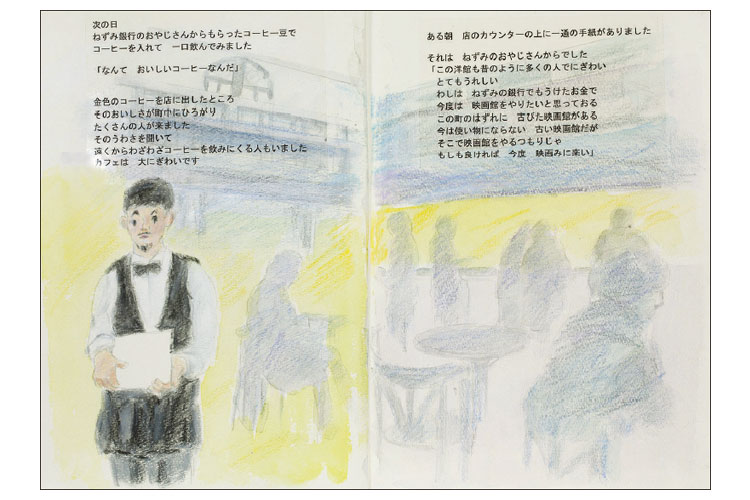 次の日
ねずみ銀行のおやじさんからもらったコーヒー豆で
コーヒーを入れて　一口飲んでみました
「なんて　おいしいコーヒーなんだ」
金色のコーヒーを店に出したところ
そのおいしさが町中にひろがり
たくさんの人が来ました
そのうわさを聞いて
遠くからわざわざコーヒーを飲みにくる人もいました
カフェは　大にぎわいです
ある朝　店のカウンターの上に一通の手紙がありました
それは　ねずみのおやじさんからでした
「この洋館も昔のように多くの人でにぎわい
とてもうれしい
わしは　ねずみの銀行でもうけたお金で
今度は　映画館をやりたいと思っておる
この町のはずれに　古びた映画館がある
今は使い物にならない　古い映画館だが
そこで映画館をやるつもりじゃ
もしも良ければ　今度　映画みに来い」